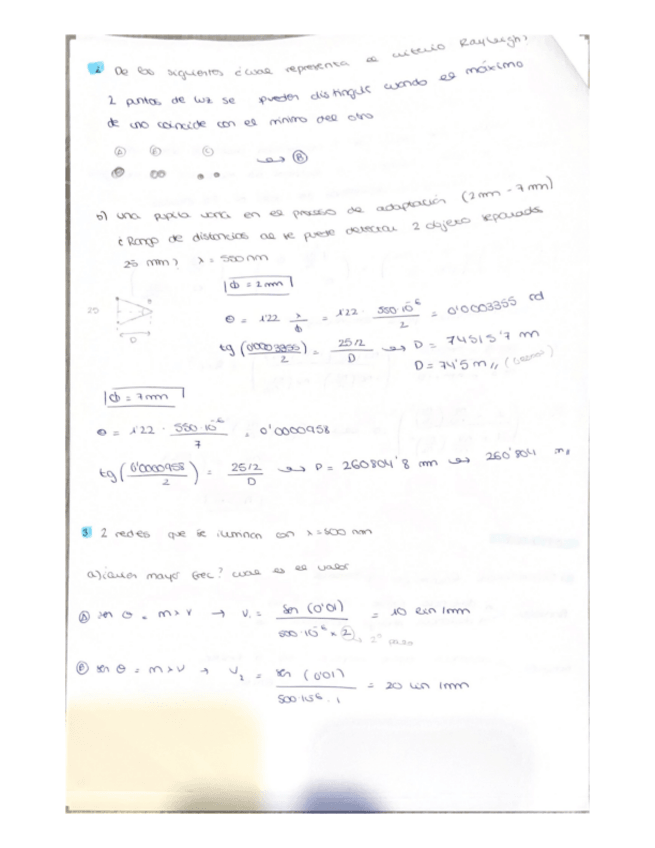 2 De los siguientes ¿cual representa el criterio Rayleigh?
2 puntos de luz se pueden distinguir cuando el máximo
de uno coincide con el minimo del otro
A B C
→ B
b) una pupila varia en el proceso de adaptación (2mm - 7mm)
¿Rango de distancias al se puede detectar 2 objeto separados
25 mm? λ = 500nm
ϕ = 2mm
25
D
θ = 1'22 λ/ϕ = 1'22 · 550·10⁻⁶/2 = 0'0003355 rd
tg (0'0003355/2) = 25/2/D → D = 74515'7 m
D = 74'5 m //
ϕ = 7mm
θ = 1'22 · 550·10⁻⁶/7 = 0'0000958
tg (0'0000958/2) = 25/2/D → D = 260804'8 mm → 260'804 m
3 2 redes que se iluminan con λ=500 nm
a) ¿mayor frec? cual es el valor
A sen θ = mλν → ν₁ = sen (0'01)/500·10⁻⁶ × 2 = 10 lin/mm
2º
B sen θ = mλν → ν₂ = sen (0'01)/500·10⁻⁶ · 1 = 20 lin/mm